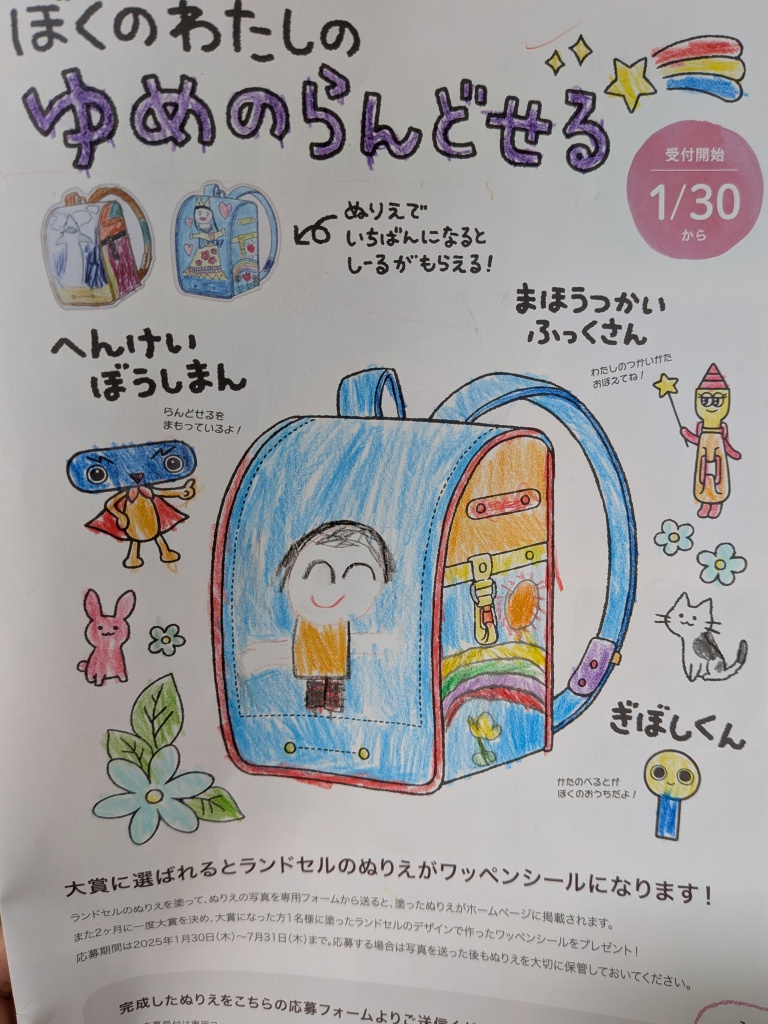 ぼくのわたしの
ゆめのらんどせる
受付開始
1/30
から
ぬりえで
いちばんになると
しーるがもらえる!
まほうつかい
ふっくさん
わたしのつかいかた
おぼえてね!
へんけい
ぼうしまん
らんどせるを
まもっているよ!
ぎぼしくん
かたのべるとが
ぼくのおうちだよ!
大賞に選ばれるとランドセルのぬりえがワッペンシールになります!
ランドセルのぬりえを塗って、ぬりえの写真を専用フォームから送ると、塗ったぬりえがホームページに掲載されます。
また2ヶ月に一度大賞を決め、大賞になった方1名様に塗ったランドセルのデザインで作ったワッペンシールをプレゼント!
応募期間は2025年1月30日(木)~7月31日(木)まで。応募する場合は写真を送った後もぬりえを大切に保管しておいてください。
完成したぬりえをこちらの応募フォームよりご送信くだ